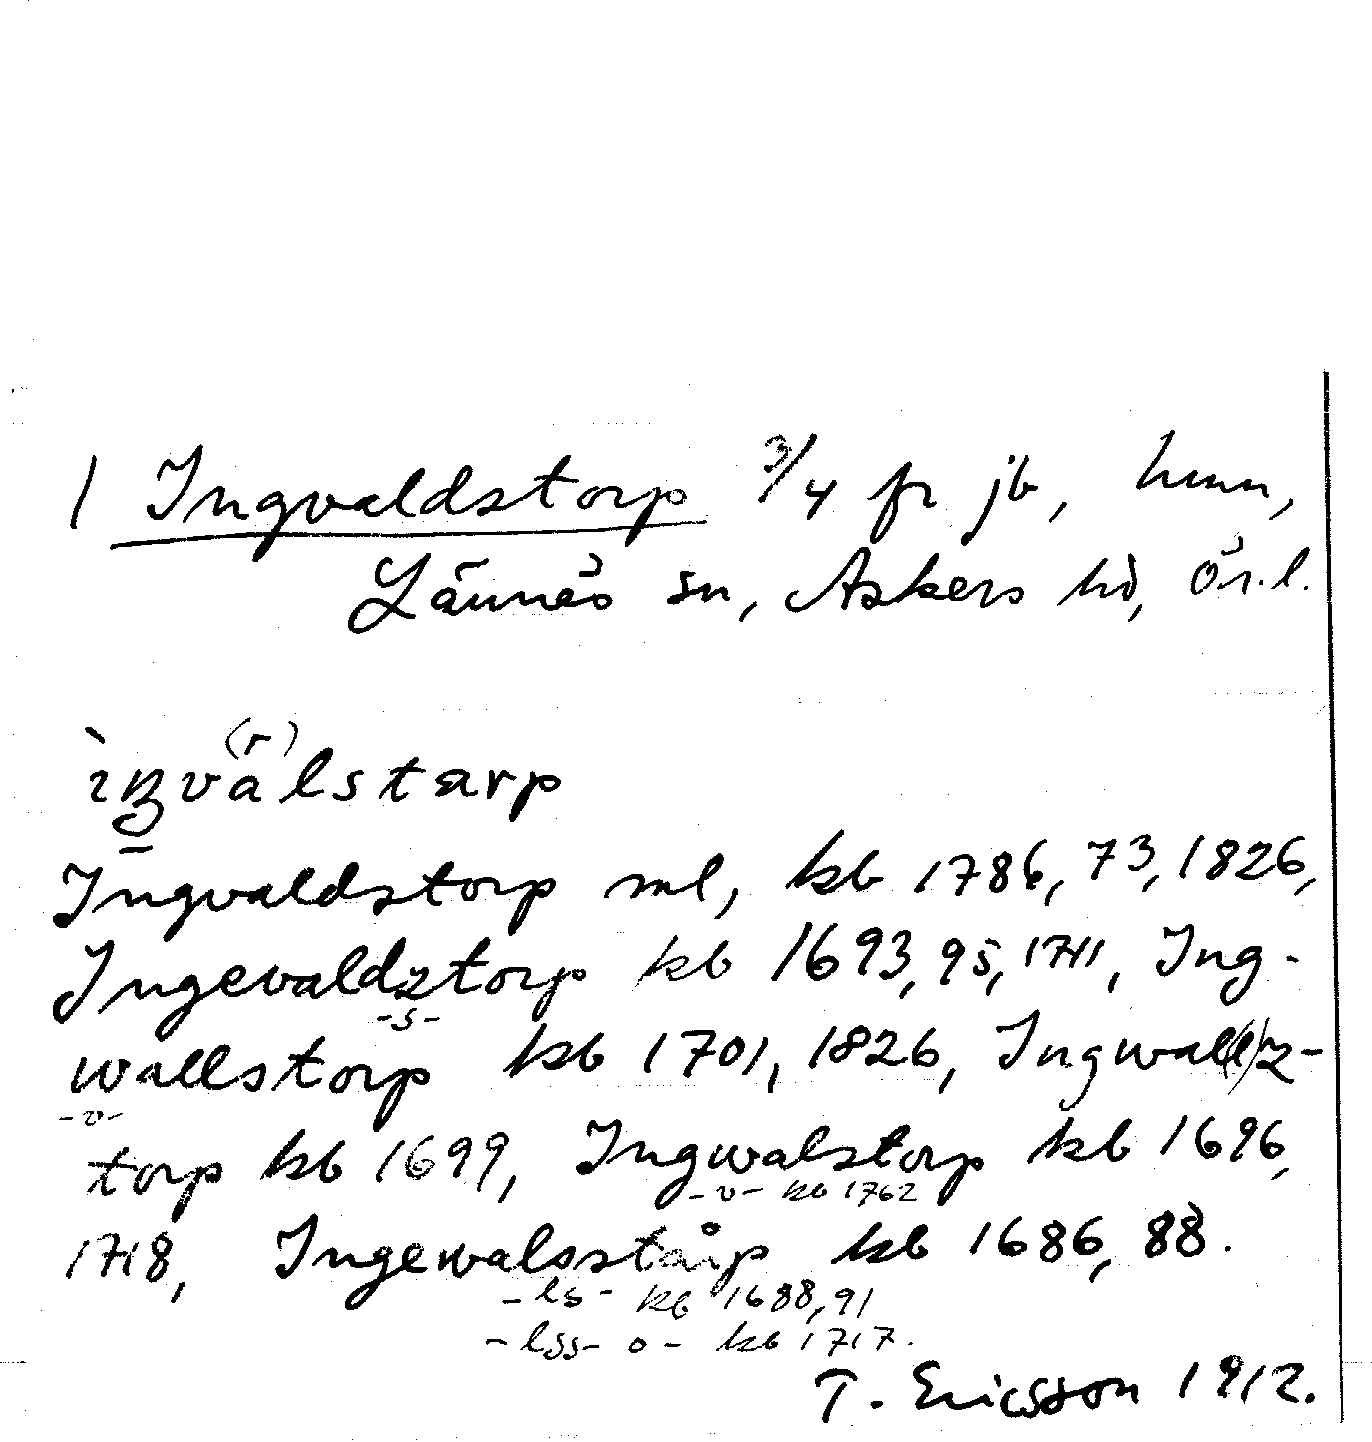 1 Ingvaldstorp 3/4 fr jb, hmn,
Lännäs sn, Askers hd, Ör.l.
(r)
ìŋvälstarp
Ingvaldstorp ml, kb 1786, 73, 1826,
Ingevaldztorp kb 1693, 95, 1711, Ing-
-s-
wallstorp kb 1701, 1826, Ingwal(l)z-
-v-
torp kb 1699, Ingwalstorp kb 1696,
-v- kb 1762
1718, Ingewalsstårp kb 1686, 88.
-ls- kb 1688, 91
-lss- o- kb 1717.
T. Ericsson 1912.